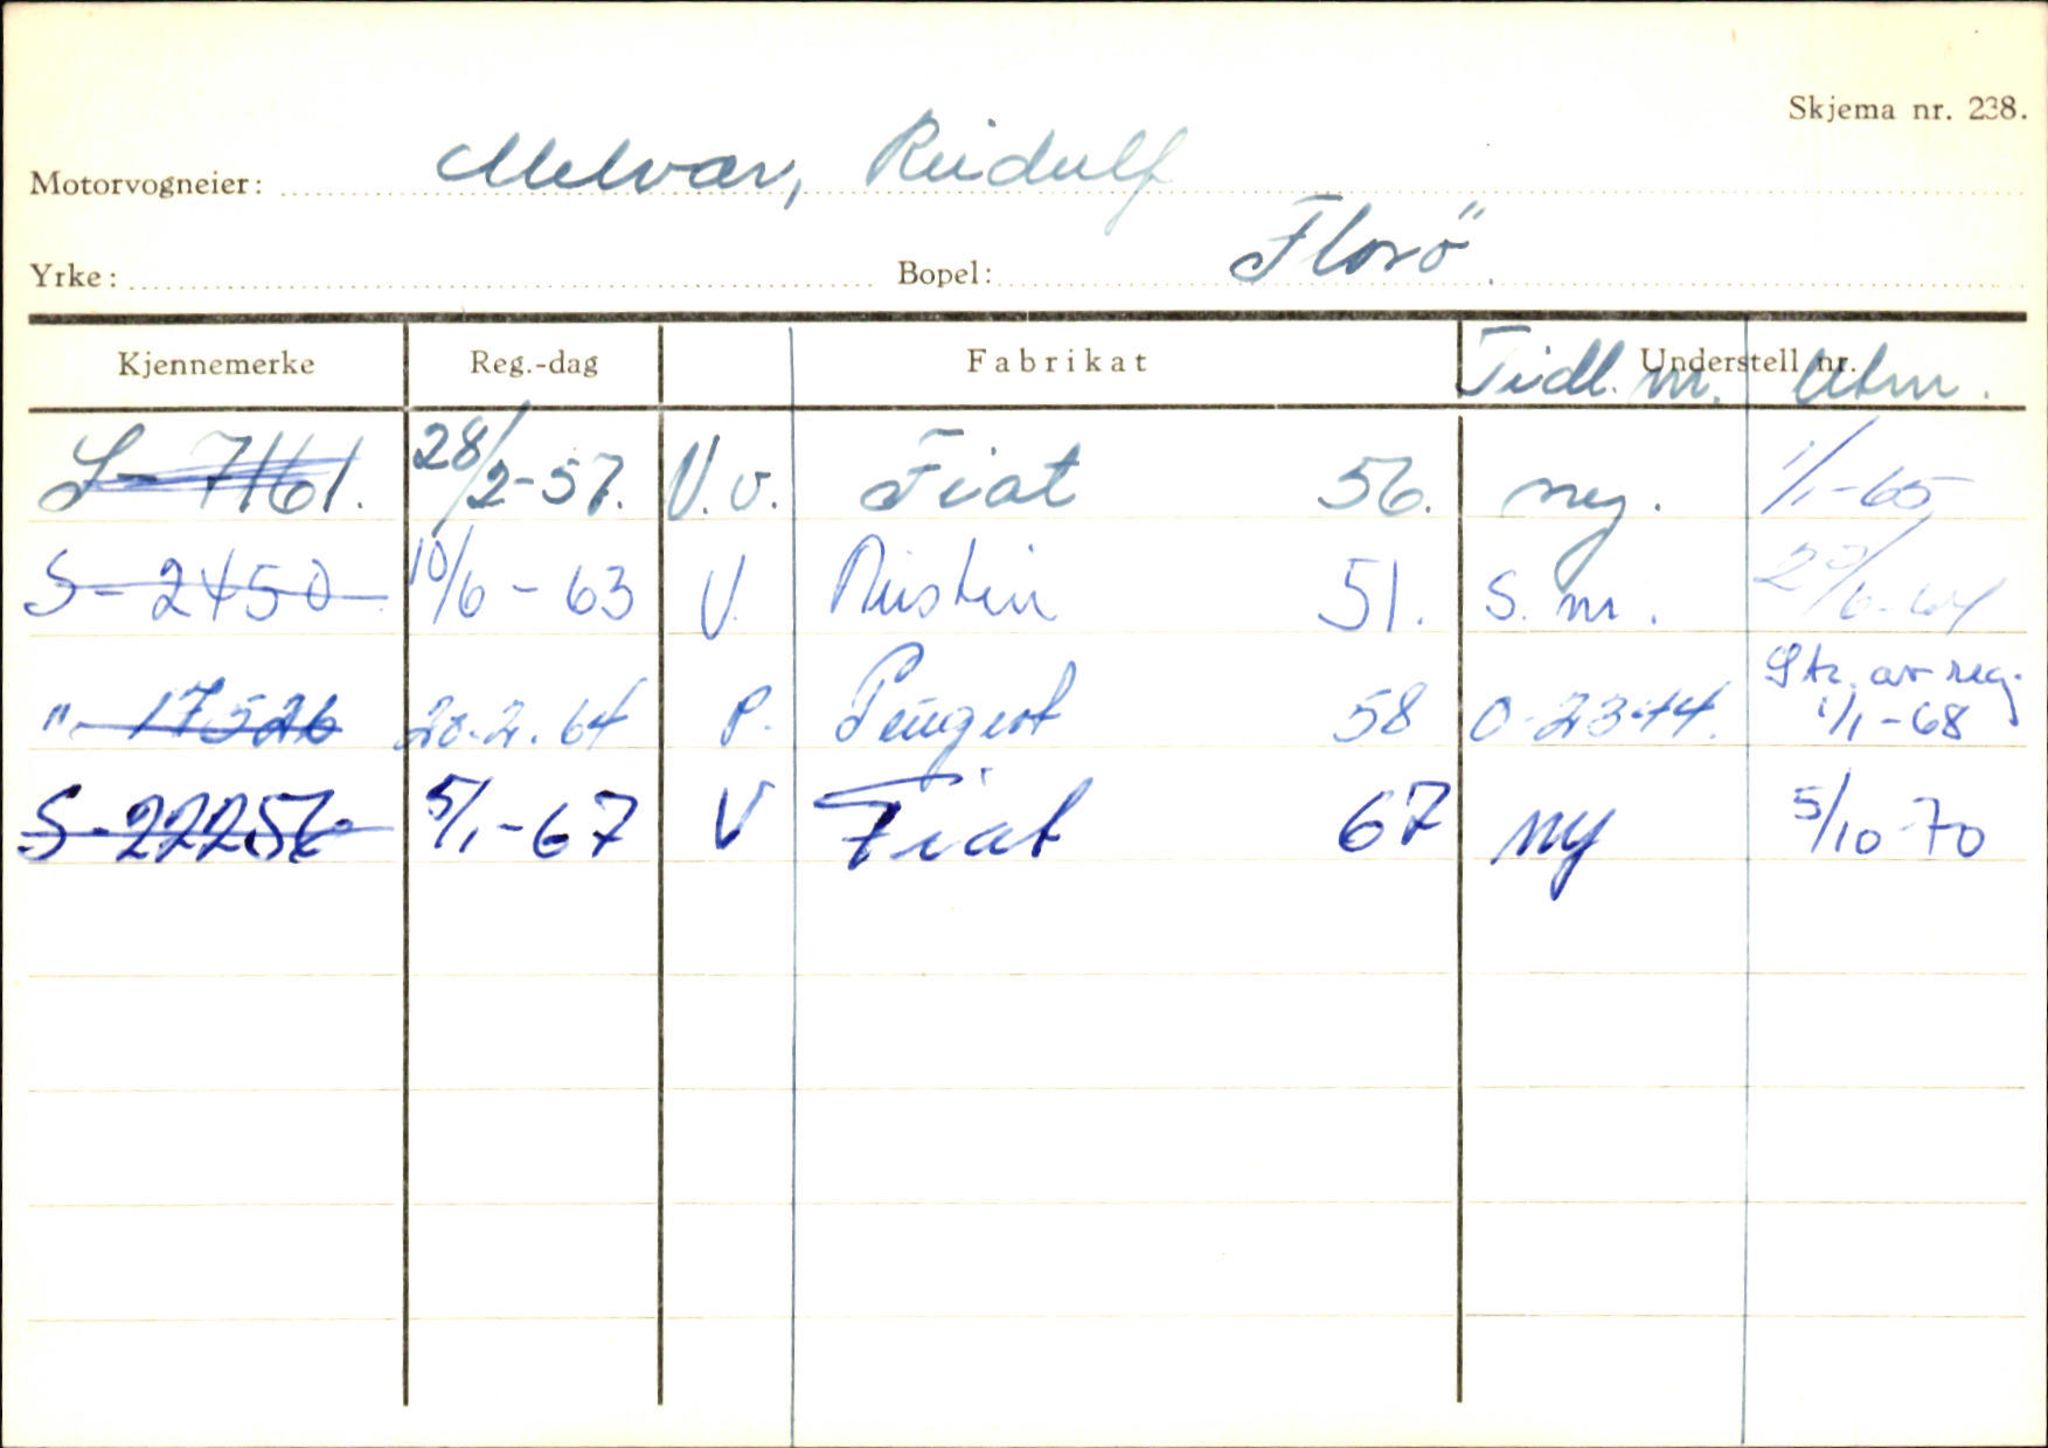 Skjema nr. 238.
Motorvogneier: Melvær, Reidulf
Yrke: Bopel: Florö.
Kjennemerke Reg.-dag Fabrikat Understell nr. Tidl. nr. Utm.
S-7161. 28/2-57. V.v. Fiat 56. ny. 1/1-65
S-2450 10/6-63 V. Austin 51. S. nr. 22/6-64
"-17526 20.2.64 P. Peugeot 58 O-2344. Str. av reg. 1/1-68
S-22256 5/1-67 V Fiat 67 ny 5/10-70